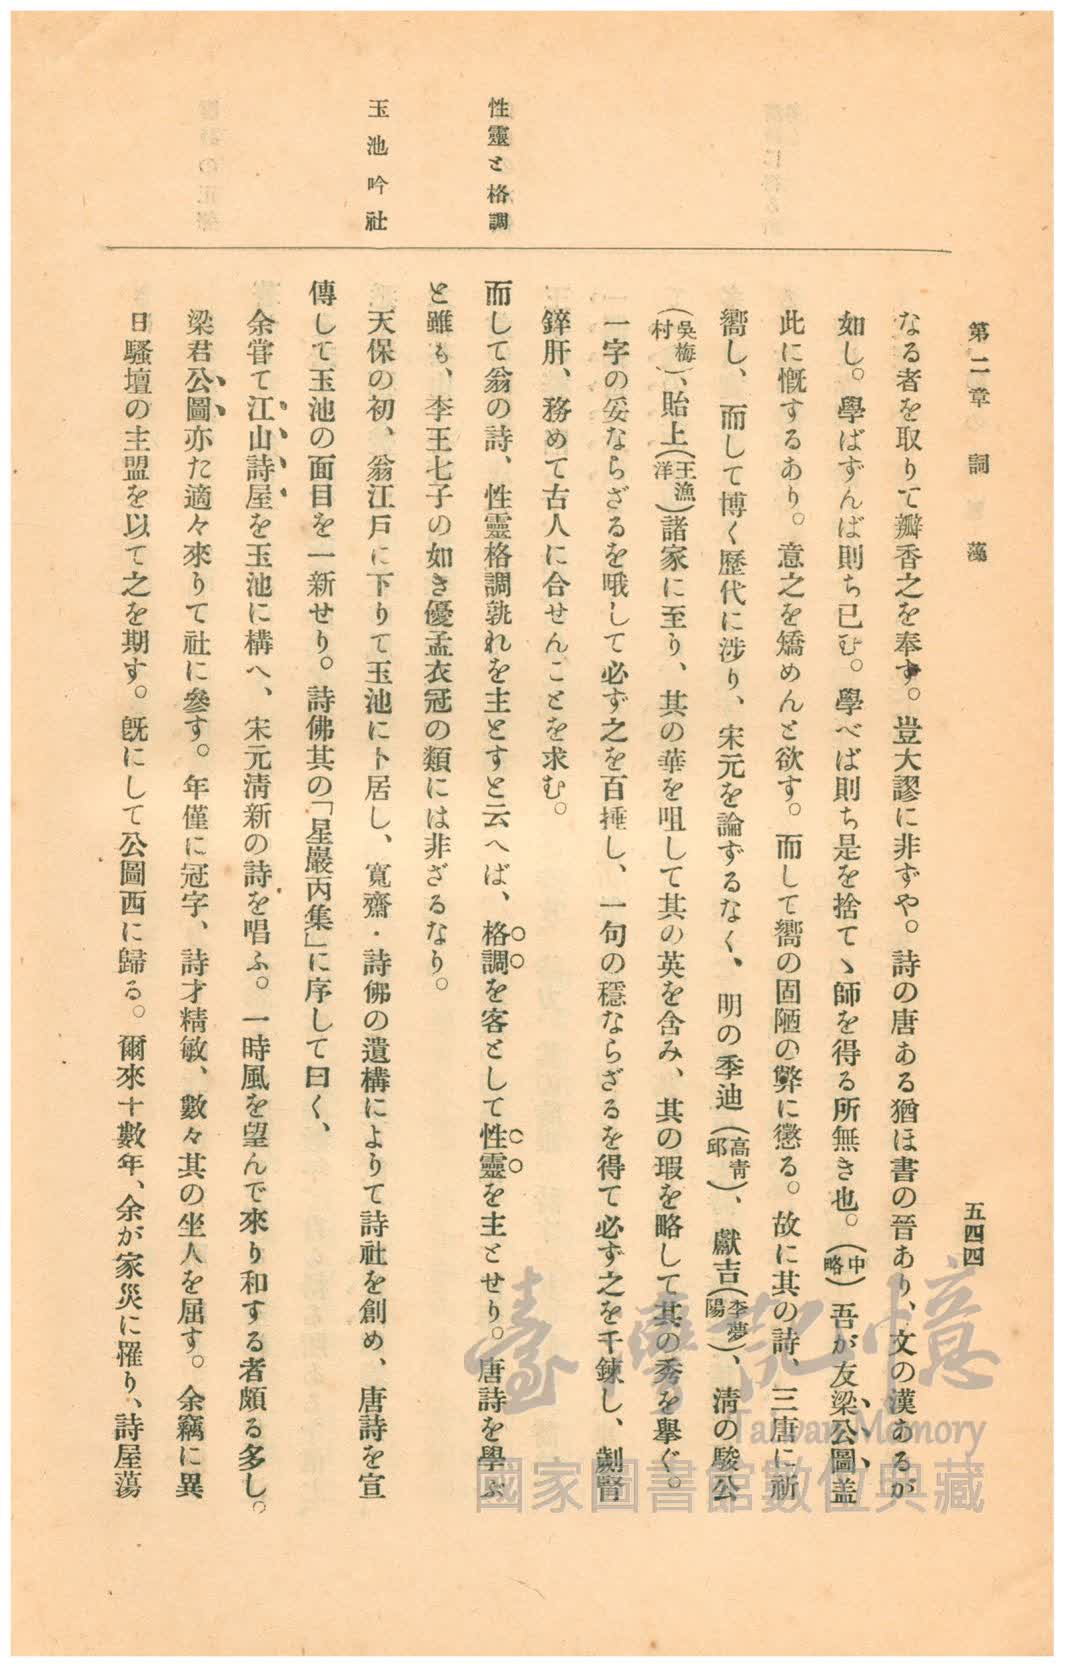 第二章　詞藻
五四四
性靈と格調
玉池吟社
なる者を取りて瓣香之を奉す。豈大謬に非ずや。詩の唐ある猶ほ書の晉あり、文の漢あるが
如し。學ばずんば則ち已む。學べば則ち是を捨てゝ師を得る所無き也。(中略)吾が友梁公圖盖
此に慨するあり。意之を矯めんと欲す。而して嚮の固陋の弊に懲る。故に其の詩、三唐に祈
嚮し、而して博く歷代に涉り、宋元を論ずるなく、明の季迪(高靑邱)、獻吉(李夢陽)、淸の駿公
(吳梅村)、貽上(王漁洋)諸家に至り、其の華を咀して其の英を含み、其の瑕を略して其の秀を擧ぐ。
一字の妥ならざるを哦して必ず之を百捶し、一句の穩ならざるを得て必ず之を千鍊し、劌腎
鋅肝、務めて古人に合せんことを求む。
而して翁の詩、性靈格調孰れを主とすと云へば、格調を客として性靈を主とせり。唐詩を學ぶ
と雖も、李王七子の如き優孟衣冠の類には非ざるなり。
天保の初、翁江戶に下りて玉池に卜居し、寬齋・詩佛の遺構によりて詩社を創め、唐詩を宣
傳して玉池の面目を一新せり。詩佛其の「星巖丙集」に序して曰く、
余甞て江山詩屋を玉池に構へ、宋元淸新の詩を唱ふ。一時風を望んで來り和する者頗る多し。
梁君公圖亦た適々來りて社に參す。年僅に冠字、詩才精敏、數々其の坐人を屈す。余竊に異
日騷壇の主盟を以て之を期す。旣にして公圖西に歸る。爾來十數年、余が家災に罹り、詩屋蕩
臺灣記憶
Taiwan Memory
國家圖書館數位典藏